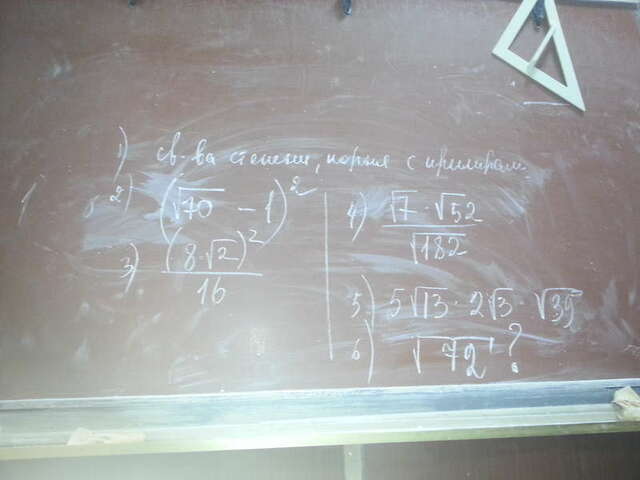 1) св-ва степени, корня с примерами
2) (√70 - 1)²
3) (8·√2)² / 16
4) √7 · √52 / √182
5) 5√13 · 2√3 · √39
6) √72 ?